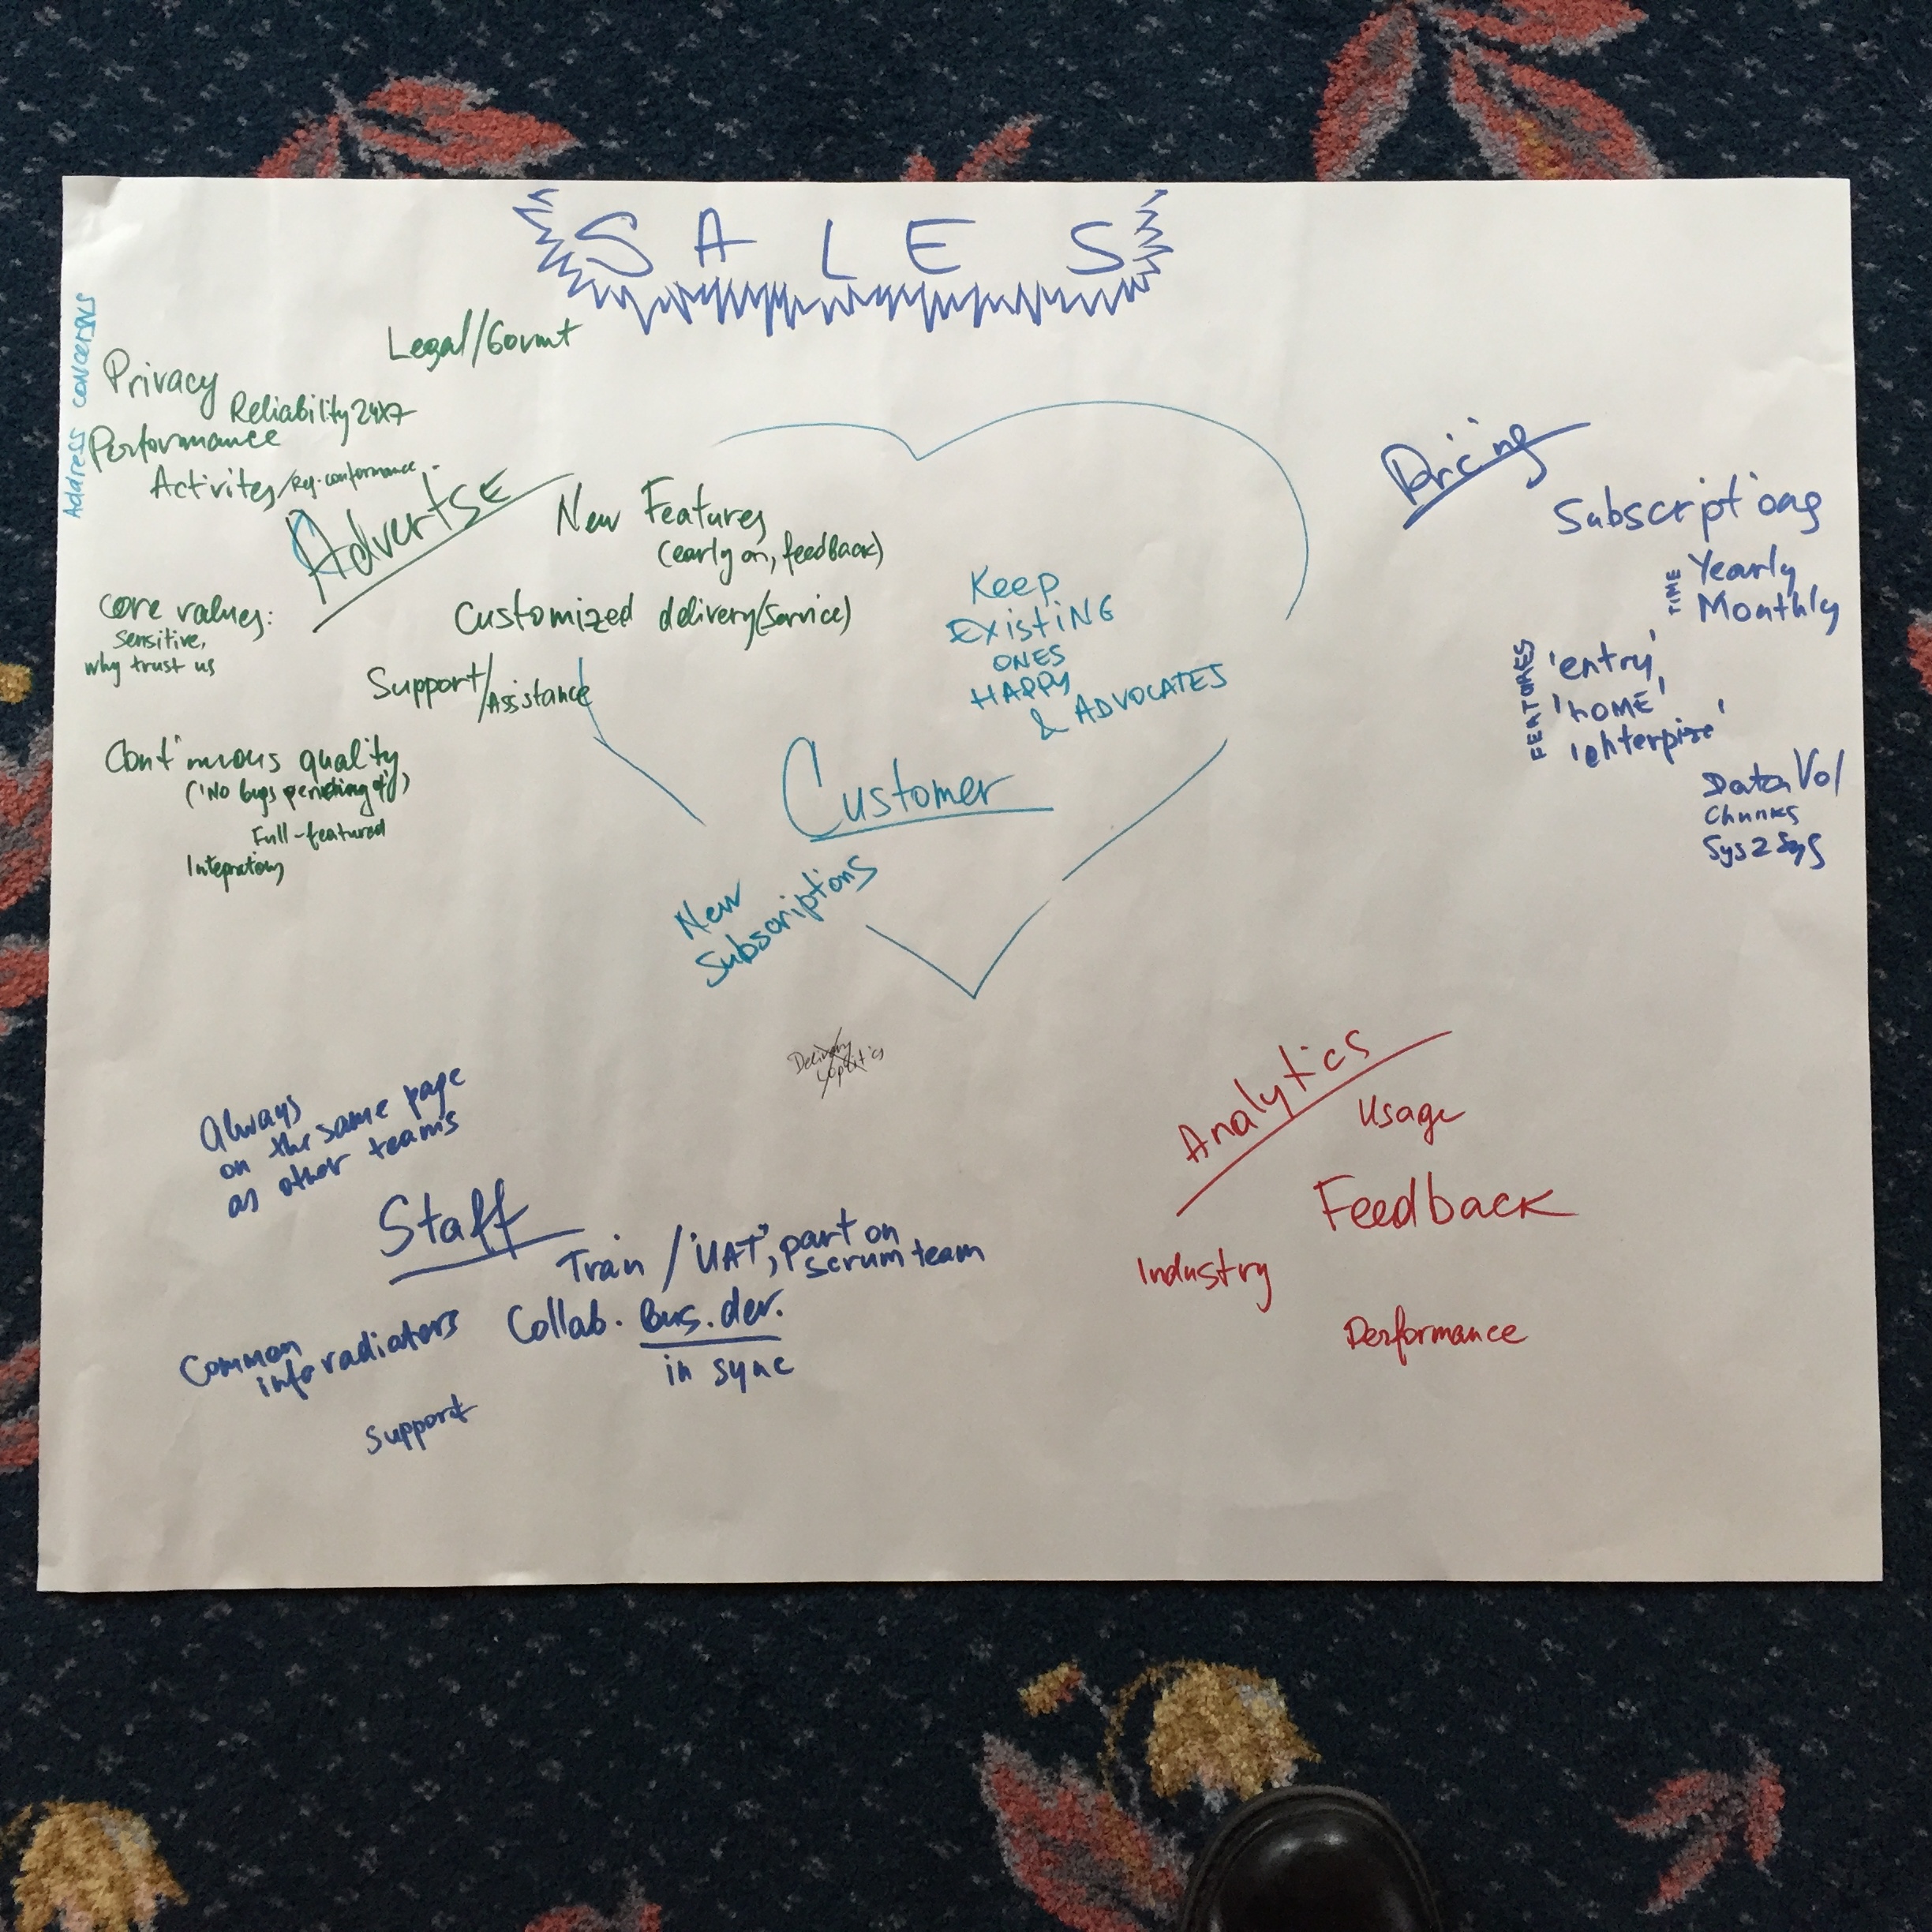 SALES
Address concerns
Legal/Govmt
Privacy
Reliability 24x7
Performance
Activites/Reg.conformance..
AdvertsE
New Features
(early on, feedback)
Customized delivery(Service)
Support/Assistance
core values:
sensitive,
why trust us
Continuous quality
('No bugs
Full-featured
Integrations
Keep
EXistiNG
ONES
HAPPY
& ADVOCATES
Customer
New
Subscriptions
Pricing
Subscriptions
TIME
Yearly
Monthly
FEATURES
'entry'
'hOME'
'enterprise'
Data Vol
Chunks
Sys2Sys
Delivery
Always
on the same page
as other teams
Staff
Train / 'UAT', part on
scrum team
Collab. Bus. dev.
in sync
Common
info radiators
Support
Analytics
Usage
Feedback
Industry
Performance